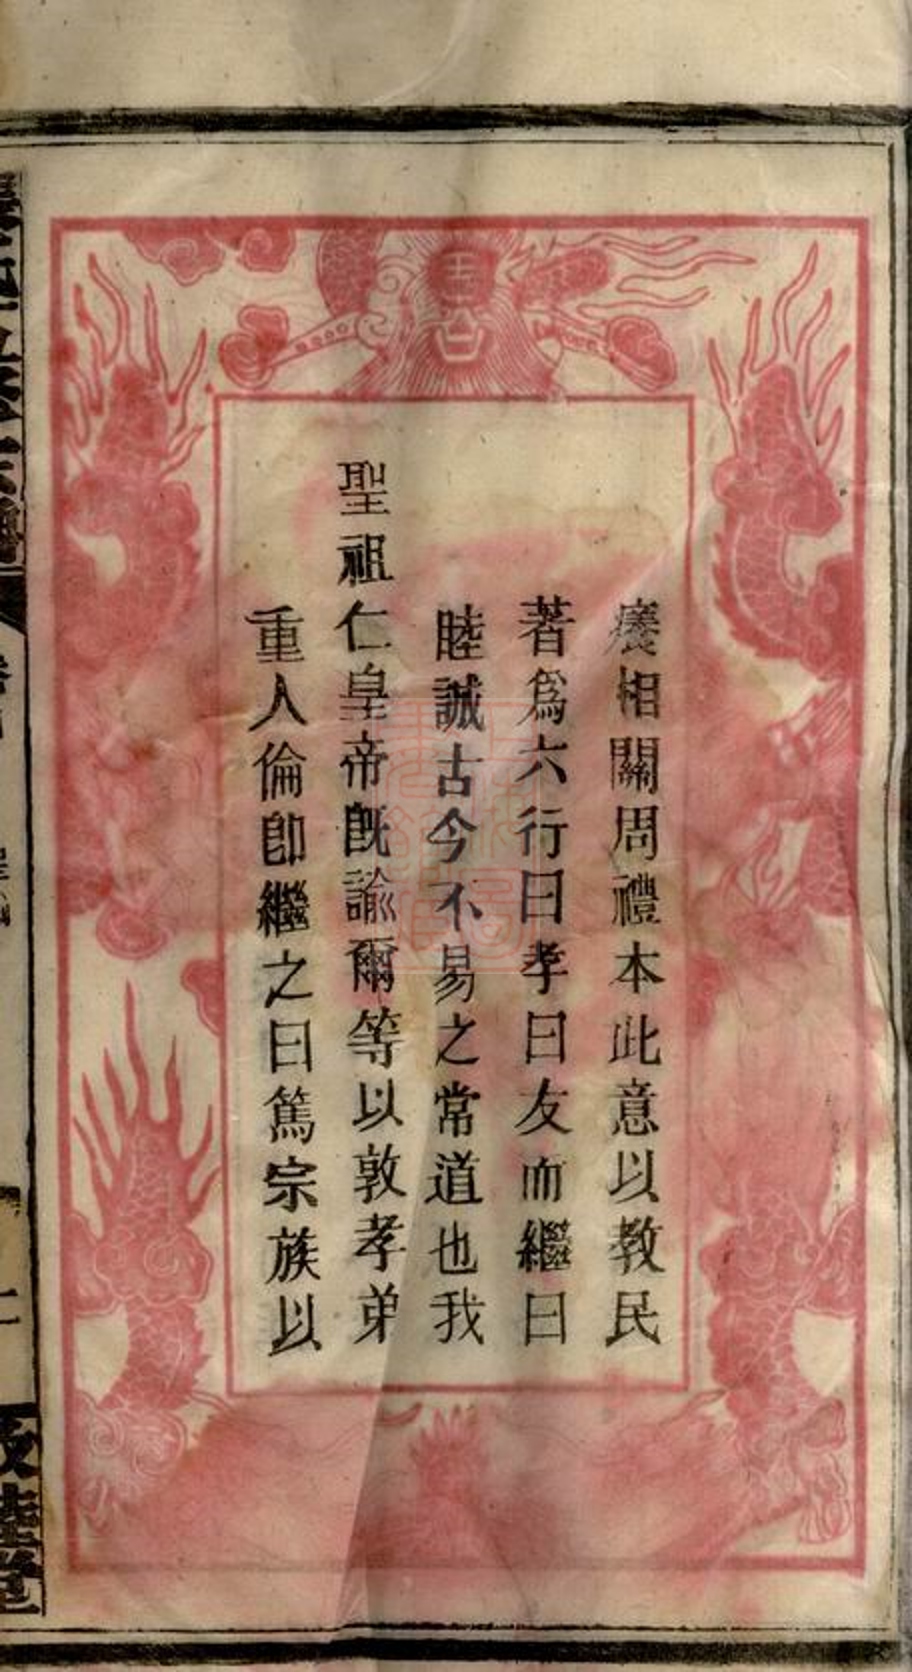 癢相關周禮本此意以教民
著爲六行曰孝曰友而繼曰
睦誠古今不易之常道也我
聖祖仁皇帝旣諭爾等以敦孝弟
重人倫卽繼之曰篤宗族以